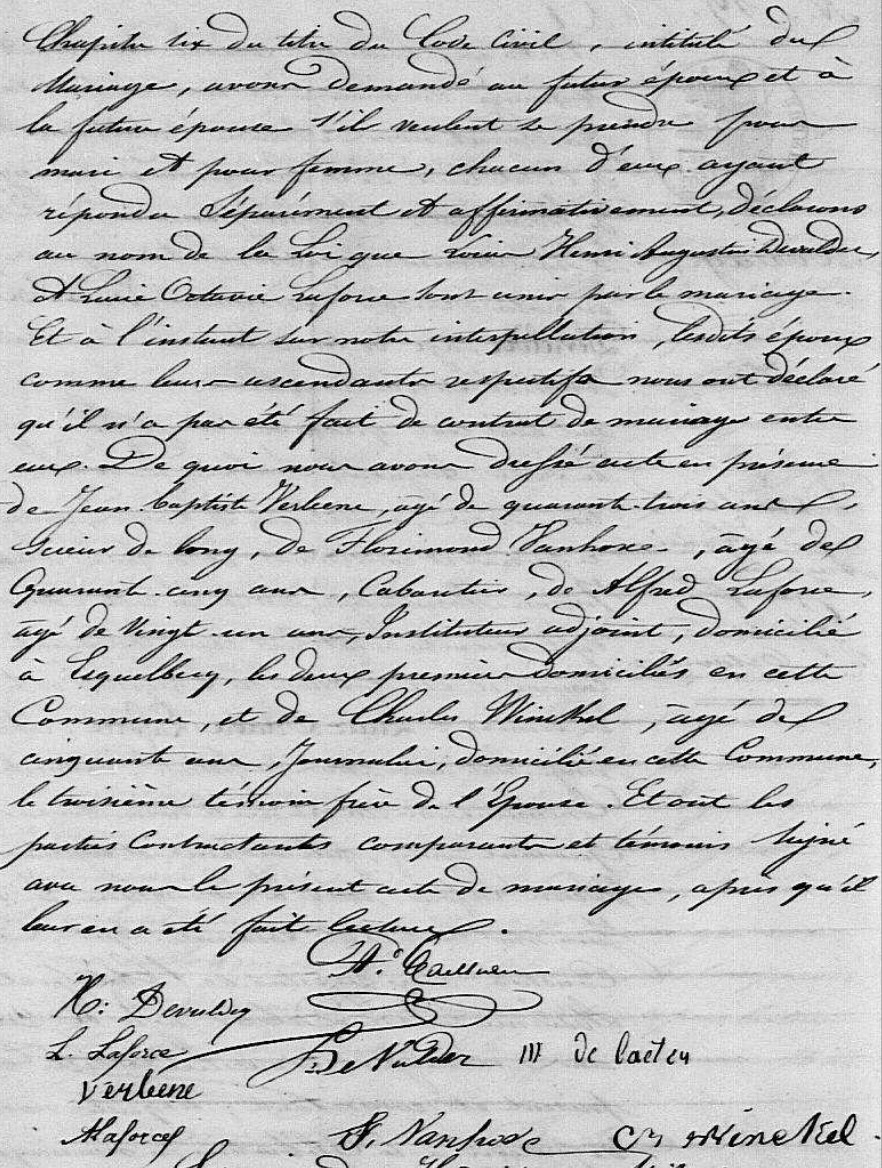 Chapitre six du titre du Code Civil, intitulé du
Mariage, avons demandé au futur époux et à
la future épouse s'il veulent se prendre pour
mari et pour femme, chacun d'eux ayant
répondu séparément et affirmativement, déclarons
au nom de la Loi que Henri Augustin Devulder,
et Lucie Octavie Laforce sont unis par le mariage.
Et à l'instant sur notre interpellation, lesdits époux
comme leurs ascendants respectifs nous ont déclaré
qu'il n'a pas été fait de contrat de mariage entre
eux. De quoi nous avons dressé acte en présence
de Jean baptiste Verbene, agé de quarante-trois ans,
scieur de long, de Florimond Vanhove, âgé de
quarante-cinq ans, Cabaretier, de Alfred Laforce,
âgé de vingt-un ans, Instituteur adjoint, domicilié
à Esquelbecq, les deux premiers domiciliés en cette
Commune, et de Charles Winckel, âgé de
cinquante ans, Journalier, domicilié en cette Commune,
le troisième témoin frère de l'Epouse. Et ont les
parties Contractantes comparants et témoins signé
avec nous le présent acte de mariage, après qu'il
leur en a été fait lecture.
H: Devulder
L. Laforce DeVulder de Caeteu
Verbene
ALaforce F. Vanhove Ch Winckel